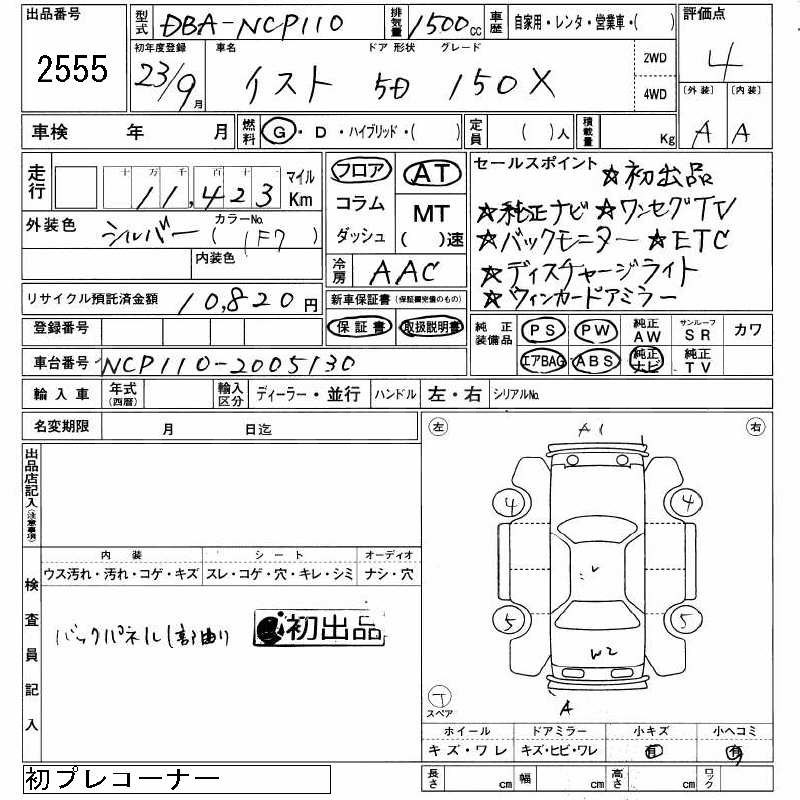 出品番号 型式 DBA-NCP110 排気量 1500cc 車歴 自家用・レンタ・営業車・( ) 評価点
2555 4
初年度登録 車名 ドア 形状 グレード 2WD
23/9月 イスト 5D 150X 4WD
〔外装〕 〔内装〕
A A
車検 年 月 燃料 G・D・ハイブリッド・( ) 定員 ( )人 積載量 Kg
走行 十万千百十 マイル
11,423 Km
フロア AT
コラム MT
ダッシュ ( )速
冷房 AAC
セールスポイント ☆初出品
☆純正ナビ ☆ワンセグTV
☆バックモニター ☆ETC
☆ディスチャージライト
☆ウィンカードアミラー
外装色 シルバー カラーNo. ( 1F7 )
内装色
リサイクル預託済金額 10,820円
新車保証書 (保証欄完備のもの)
保証書 取扱説明書
登録番号
純正装備品 PS PW 純正AW サンルーフSR カワ
エアBAG ABS 純正ナビ 純正TV
車台番号 NCP110-2005130
輸入車 年式(西暦) 輸入区分 ディーラー・並行 ハンドル 左・右 シリアルNo.
名変期限 月 日迄
出品店記入(注意事項)
左 右
A1
4 4
5 5
W2
A
T
スペア
検査員記入
内装 シート オーディオ
ウス汚れ・汚れ・コゲ・キズ スレ・コゲ・穴・キレ・シミ ナシ・穴
バックパネル1部曲り 初出品
ホイール ドアミラー 小キズ 小ヘコミ
キズ・ワレ キズ・ヒビ・ワレ 有 有
初プレコーナー
長さ cm 幅 cm 高さ cm ロック